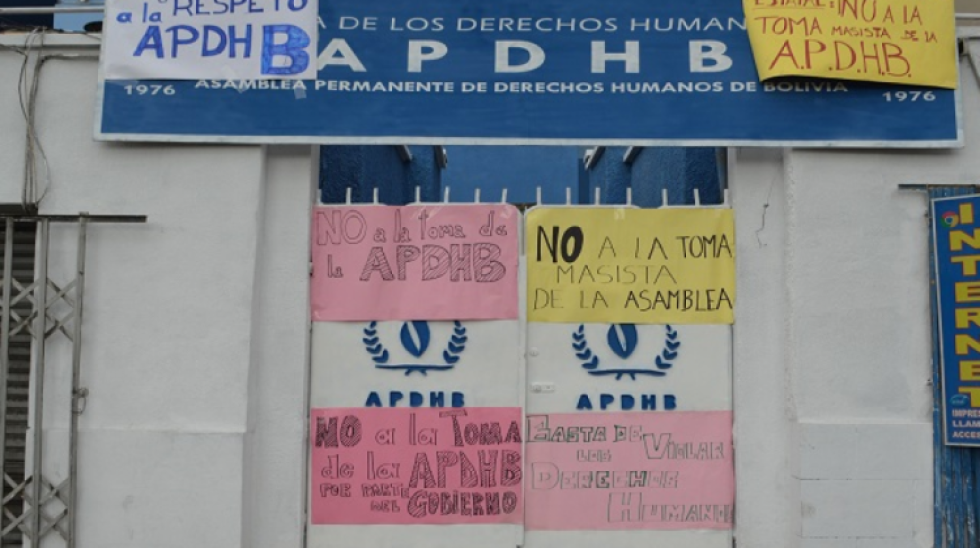 RESPETO
a la
APDHB
A DE LOS DERECHOS HUMAN
APDHB
1976 ASAMBLEA PERMANENTE DE DERECHOS HUMANOS DE BOLIVIA 1976
NO A LA
TOMA MASISTA DE LA
A.P.D.H.B.
NO a la toma de
la APDHB
NO A LA TOMA
MASISTA
DE LA ASAMBLEA
APDHB
APDHB
NO a la TOMA
de la APDHB
POR PARTE
DEL GOBIERNO
BASTA DE
LOS VIOLAR
DERECHOS
HUMANOS
INTERNET
IMPRE
LLAM
ACCES